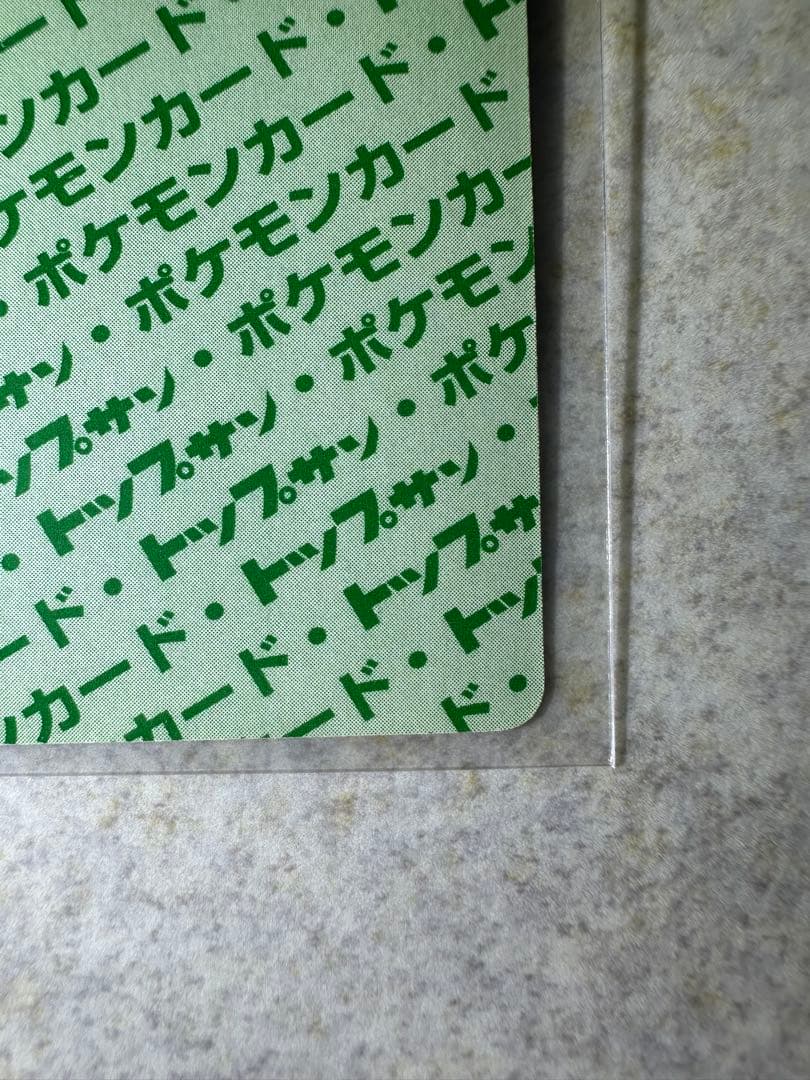 ンカード
ケモンカード・ト
・ポケモンカード・ト
サン・ポケモンカード
ップサン・ポケモンカー
・トップサン・ポケモン
ード・トップサン・ポケ
ンカード・トップサン・
カード・トップサ
ード・トッ
ド・